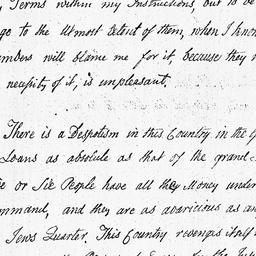 Terms within my Instructions, but to be
go to the Utmost Extent of them, when I know
mbers will blame me for it, because they
necessity of it, is unpleasant.
There is a Despotism in this Country in the
Loans as absolute as that of the grand
or Six People have all the Money under
mmand, and they are as avaricious as an
Jews Quarter. This Country revenges itself